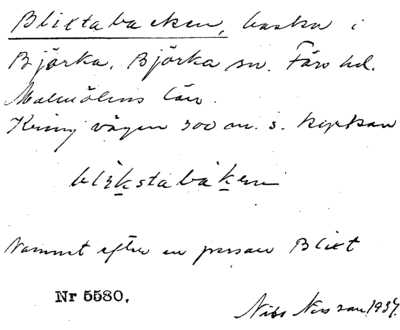 Blixtabacken, backe i
Björka, Björka sn. Färs hd.
Malmöhus län.
Kring vägen 300 m. s. kyrkan
blìkstabàken
Namnet efter en person Blixt
Nr 5580.
Nils Nilsson 1937.